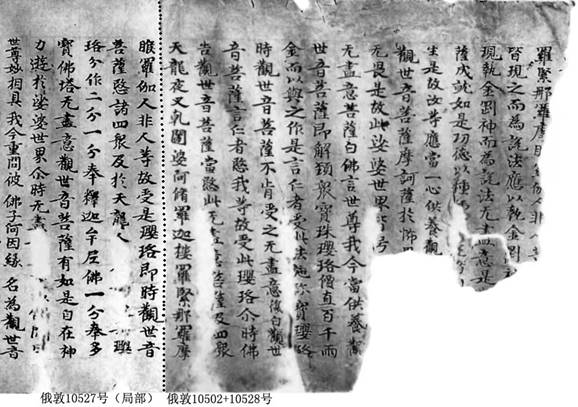 羅緊那羅摩睺伽人非
皆現之而為說法應以執金剛
現執金剛神而為說法无盡意是
薩成就如是功德以種
生是故汝等應當一心供養觀
觀世音菩薩摩訶薩於怖
无畏是故此娑婆世界皆号
无盡意菩薩白佛言世尊我今當供養觀
世音菩薩即解頸眾寶珠瓔珞價直百千兩
金而以與之作是言仁者受此法施珍寶瓔珞
時觀世音菩薩不肯受之无盡意復白觀世
音菩薩言仁者愍我等故受此瓔珞尒時佛
告觀世音菩薩當愍此无盡意菩薩及四眾
天龍夜叉乾闥婆阿脩羅迦樓羅緊那羅摩
睺羅伽人非人等故受是瓔珞即時觀世音
菩薩愍諸四眾及於天龍人瓔
珞分作二分一分奉釋迦牟尼佛一分奉多
寶佛塔无盡意觀世音菩薩有如是自在神
力遊於娑婆世界尒時无盡
世尊妙相具 我今重問彼 佛子何因緣 名為觀世音
俄敦10527号（局部） 俄敦10502+10528号